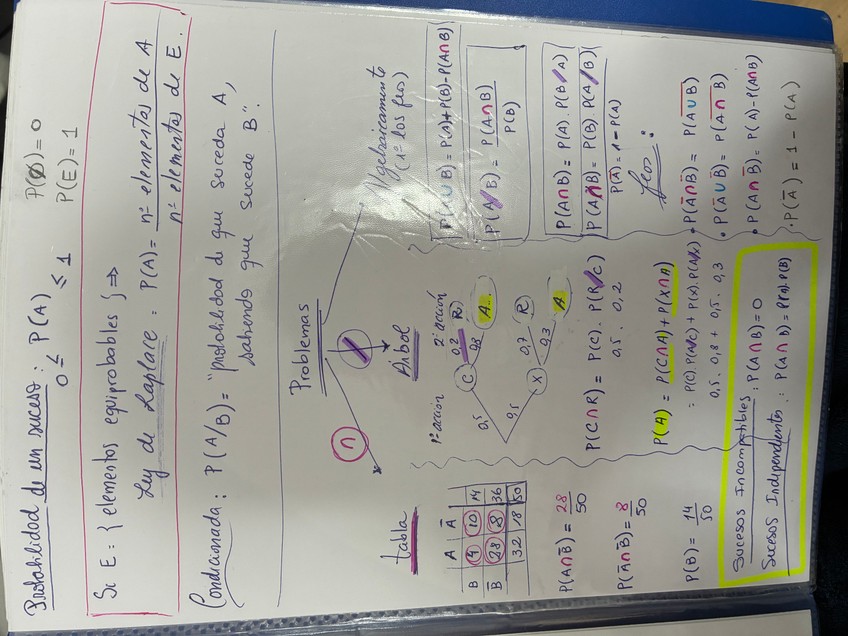 Probabilidad de un suceso: P(A)
0 ≤ ≤ 1
P(∅) = 0
P(E) = 1
Si E = { elementos equiprobables } ⇒
Ley de Laplace: P(A) = nº elementos de A
nº elementos de E.
Condicionada: P(A/B) = "probabilidad de que suceda A,
sabiendo que sucede B".
Problemas
∩
/
tabla
A Ā
B 4 10 14
B̄ 28 8 36
32 18 50
P(A∩B̄) = 28/50
P(Ā∩B̄) = 8/50
P(B) = 14/50
Árbol
1ª acción 2ª acción
0,5 C 0,2 R
0,8 A
0,5 X 0,7 R
0,3 A
P(C∩R) = P(C) · P(R/C)
0,5 · 0,2
P(A) = P(C∩A) + P(X∩A)
= P(C)·P(A/C) + P(X)·P(A/X)
0,5 · 0,8 + 0,5 · 0,3
Algebraicamente
(1º los feos)
P(A∪B) = P(A)+P(B)-P(A∩B)
P(A/B) = P(A∩B)/P(B)
P(A∩B) = P(A) · P(B/A)
P(A∩B) = P(B) · P(A/B)
P(Ā) = 1 - P(A)
feos:
• P(Ā∩B̄) = P(A̅∪̅B̅)
• P(Ā∪B̄) = P(A̅∩̅B̅)
• P(A∩B̄) = P(A) - P(A∩B)
• P(Ā) = 1 - P(A)
Sucesos Incompatibles: P(A∩B) = 0
Sucesos Independientes: P(A∩B) = P(A)·P(B)